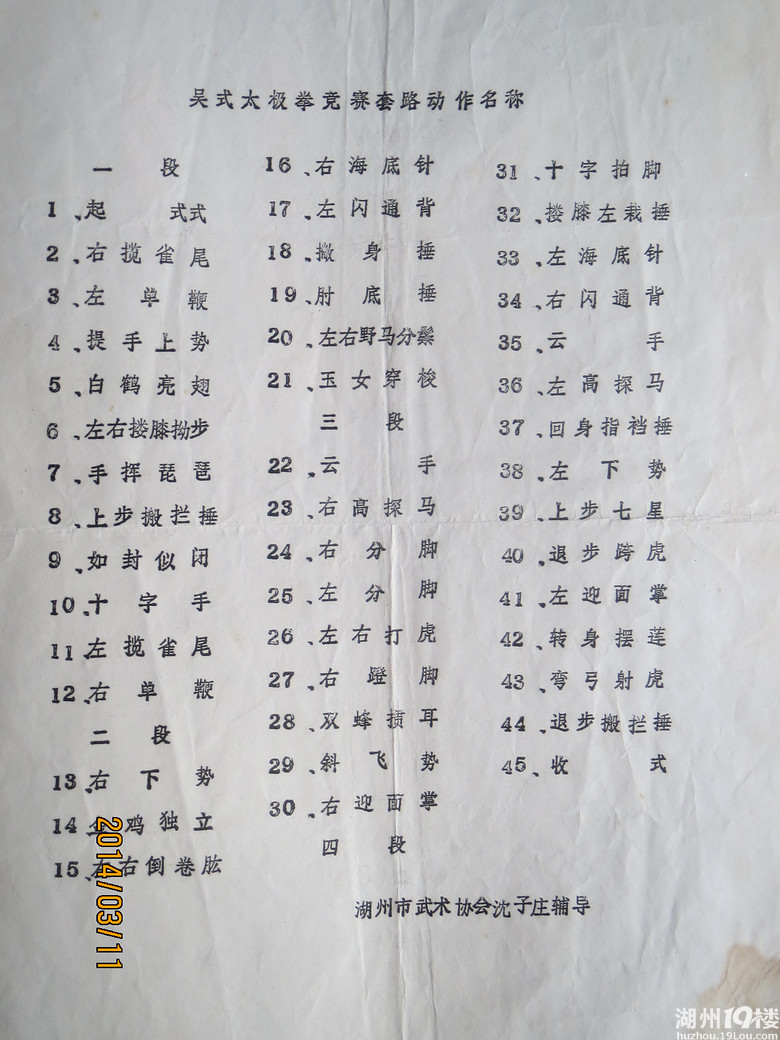 吴式太极拳竞赛套路动作名称
一段
1、起式式
2、右揽雀尾
3、左单鞭
4、提手上势
5、白鹤亮翅
6、左右搂膝拗步
7、手挥琵琶
8、上步搬拦捶
9、如封似闭
10、十字手
11、左揽雀尾
12、右单鞭
二段
13、右下势
14、金鸡独立
15、左右倒卷肱
16、右海底针
17、左闪通背
18、撇身捶
19、肘底捶
20、左右野马分鬃
21、玉女穿梭
三段
22、云手
23、右高探马
24、右分脚
25、左分脚
26、左右打虎
27、右蹬脚
28、双蜂掼耳
29、斜飞势
30、右迎面掌
四段
31、十字拍脚
32、搂膝左栽捶
33、左海底针
34、右闪通背
35、云手
36、左高探马
37、回身指裆捶
38、左下势
39、上步七星
40、退步跨虎
41、左迎面掌
42、转身摆莲
43、弯弓射虎
44、退步搬拦捶
45、收式
湖州市武术协会沈子庄辅导
2014/03/11
湖州19楼
huzhou.19Lou.com